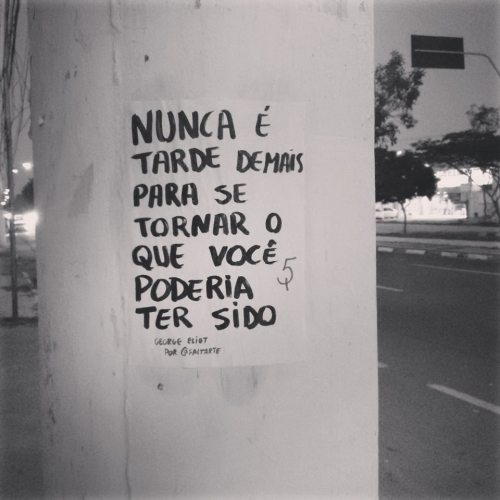 NUNCA É
TARDE DEMAIS
PARA SE
TORNAR O
QUE VOCÊ
PODERIA
TER SIDO
GEORGE ELIOT